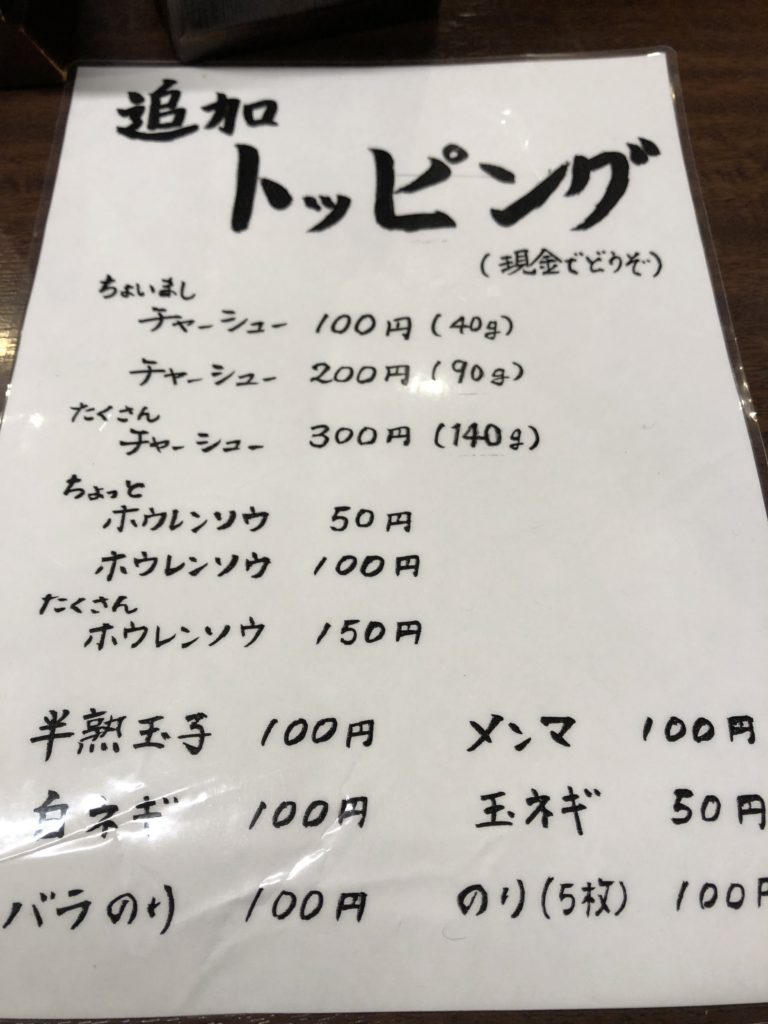 追加
トッピング
(現金でどうぞ)
ちょいまし
チャーシュー 100円 (40g)
チャーシュー 200円 (90g)
たくさん
チャーシュー 300円 (140g)
ちょっと
ホウレンソウ 50円
ホウレンソウ 100円
たくさん
ホウレンソウ 150円
半熟玉子 100円 メンマ 100円
白ネギ 100円 玉ネギ 50円
バラのり 100円 のり(5枚) 100円